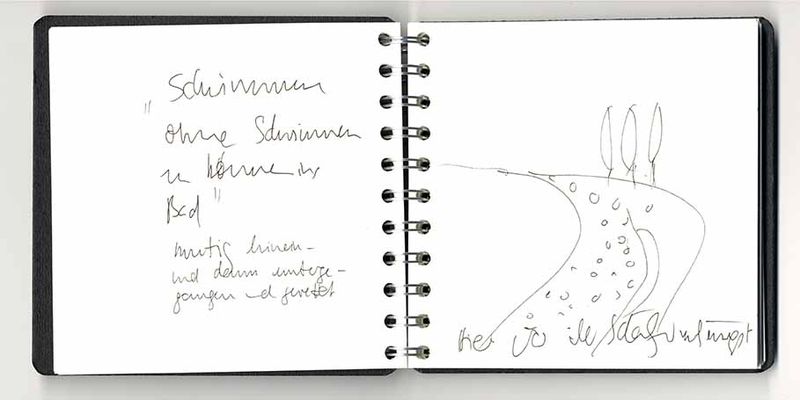 Schwimmen
"
ohne Schwimmen
zu können ins
Bad "
mutig hinein-
und dann unterge-
gangen und gerettet
Hier wo